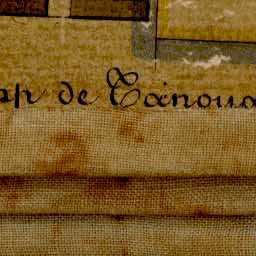 ap de Tanoua